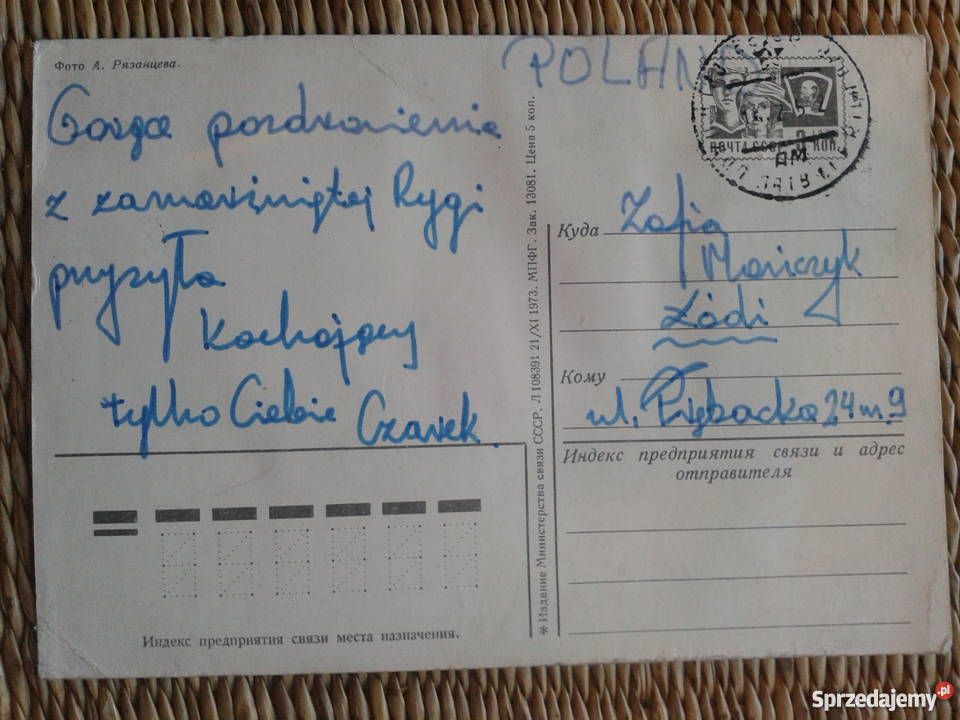 Фото А. Рязанцева.
POLAND
Gorące pozdrowienia
z zamarzniętej Rygi
przysyła
Kochający
tylko Ciebie Czarek.
ПОЧТА СССР
КОП.
Куда Zofia
Mańczyk
Łódź
Кому
ul. 24 m. 9
Индекс предприятия связи и адрес
отправителя
Индекс предприятия связи места назначения.
✻ Издание Министерства связи СССР. Л 108391 21/XI 1973. МПФГ. Зак. 13081. Цена 5 коп.
Sprzedajemy.pl